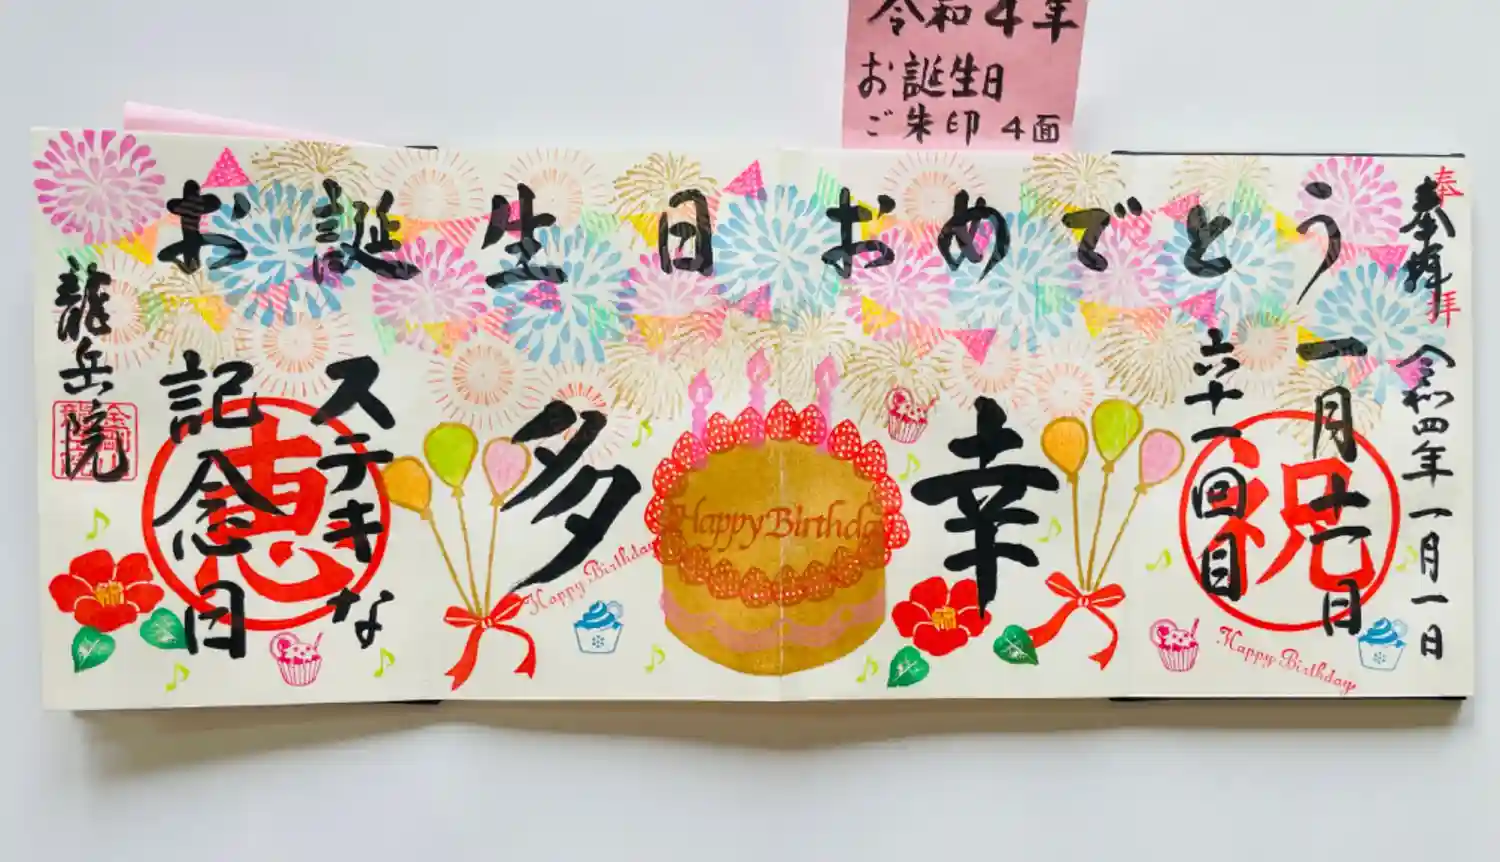 令和4年
お誕生日
ご朱印 4面
お誕生日おめでとう
奉拝
奉拝
令和四年一月一日
一月十一日
六十一回目
祝
幸
多
Happy Birthday
Happy Birthday
Happy Birthday
ステキな
記念日
恵
龍岳院